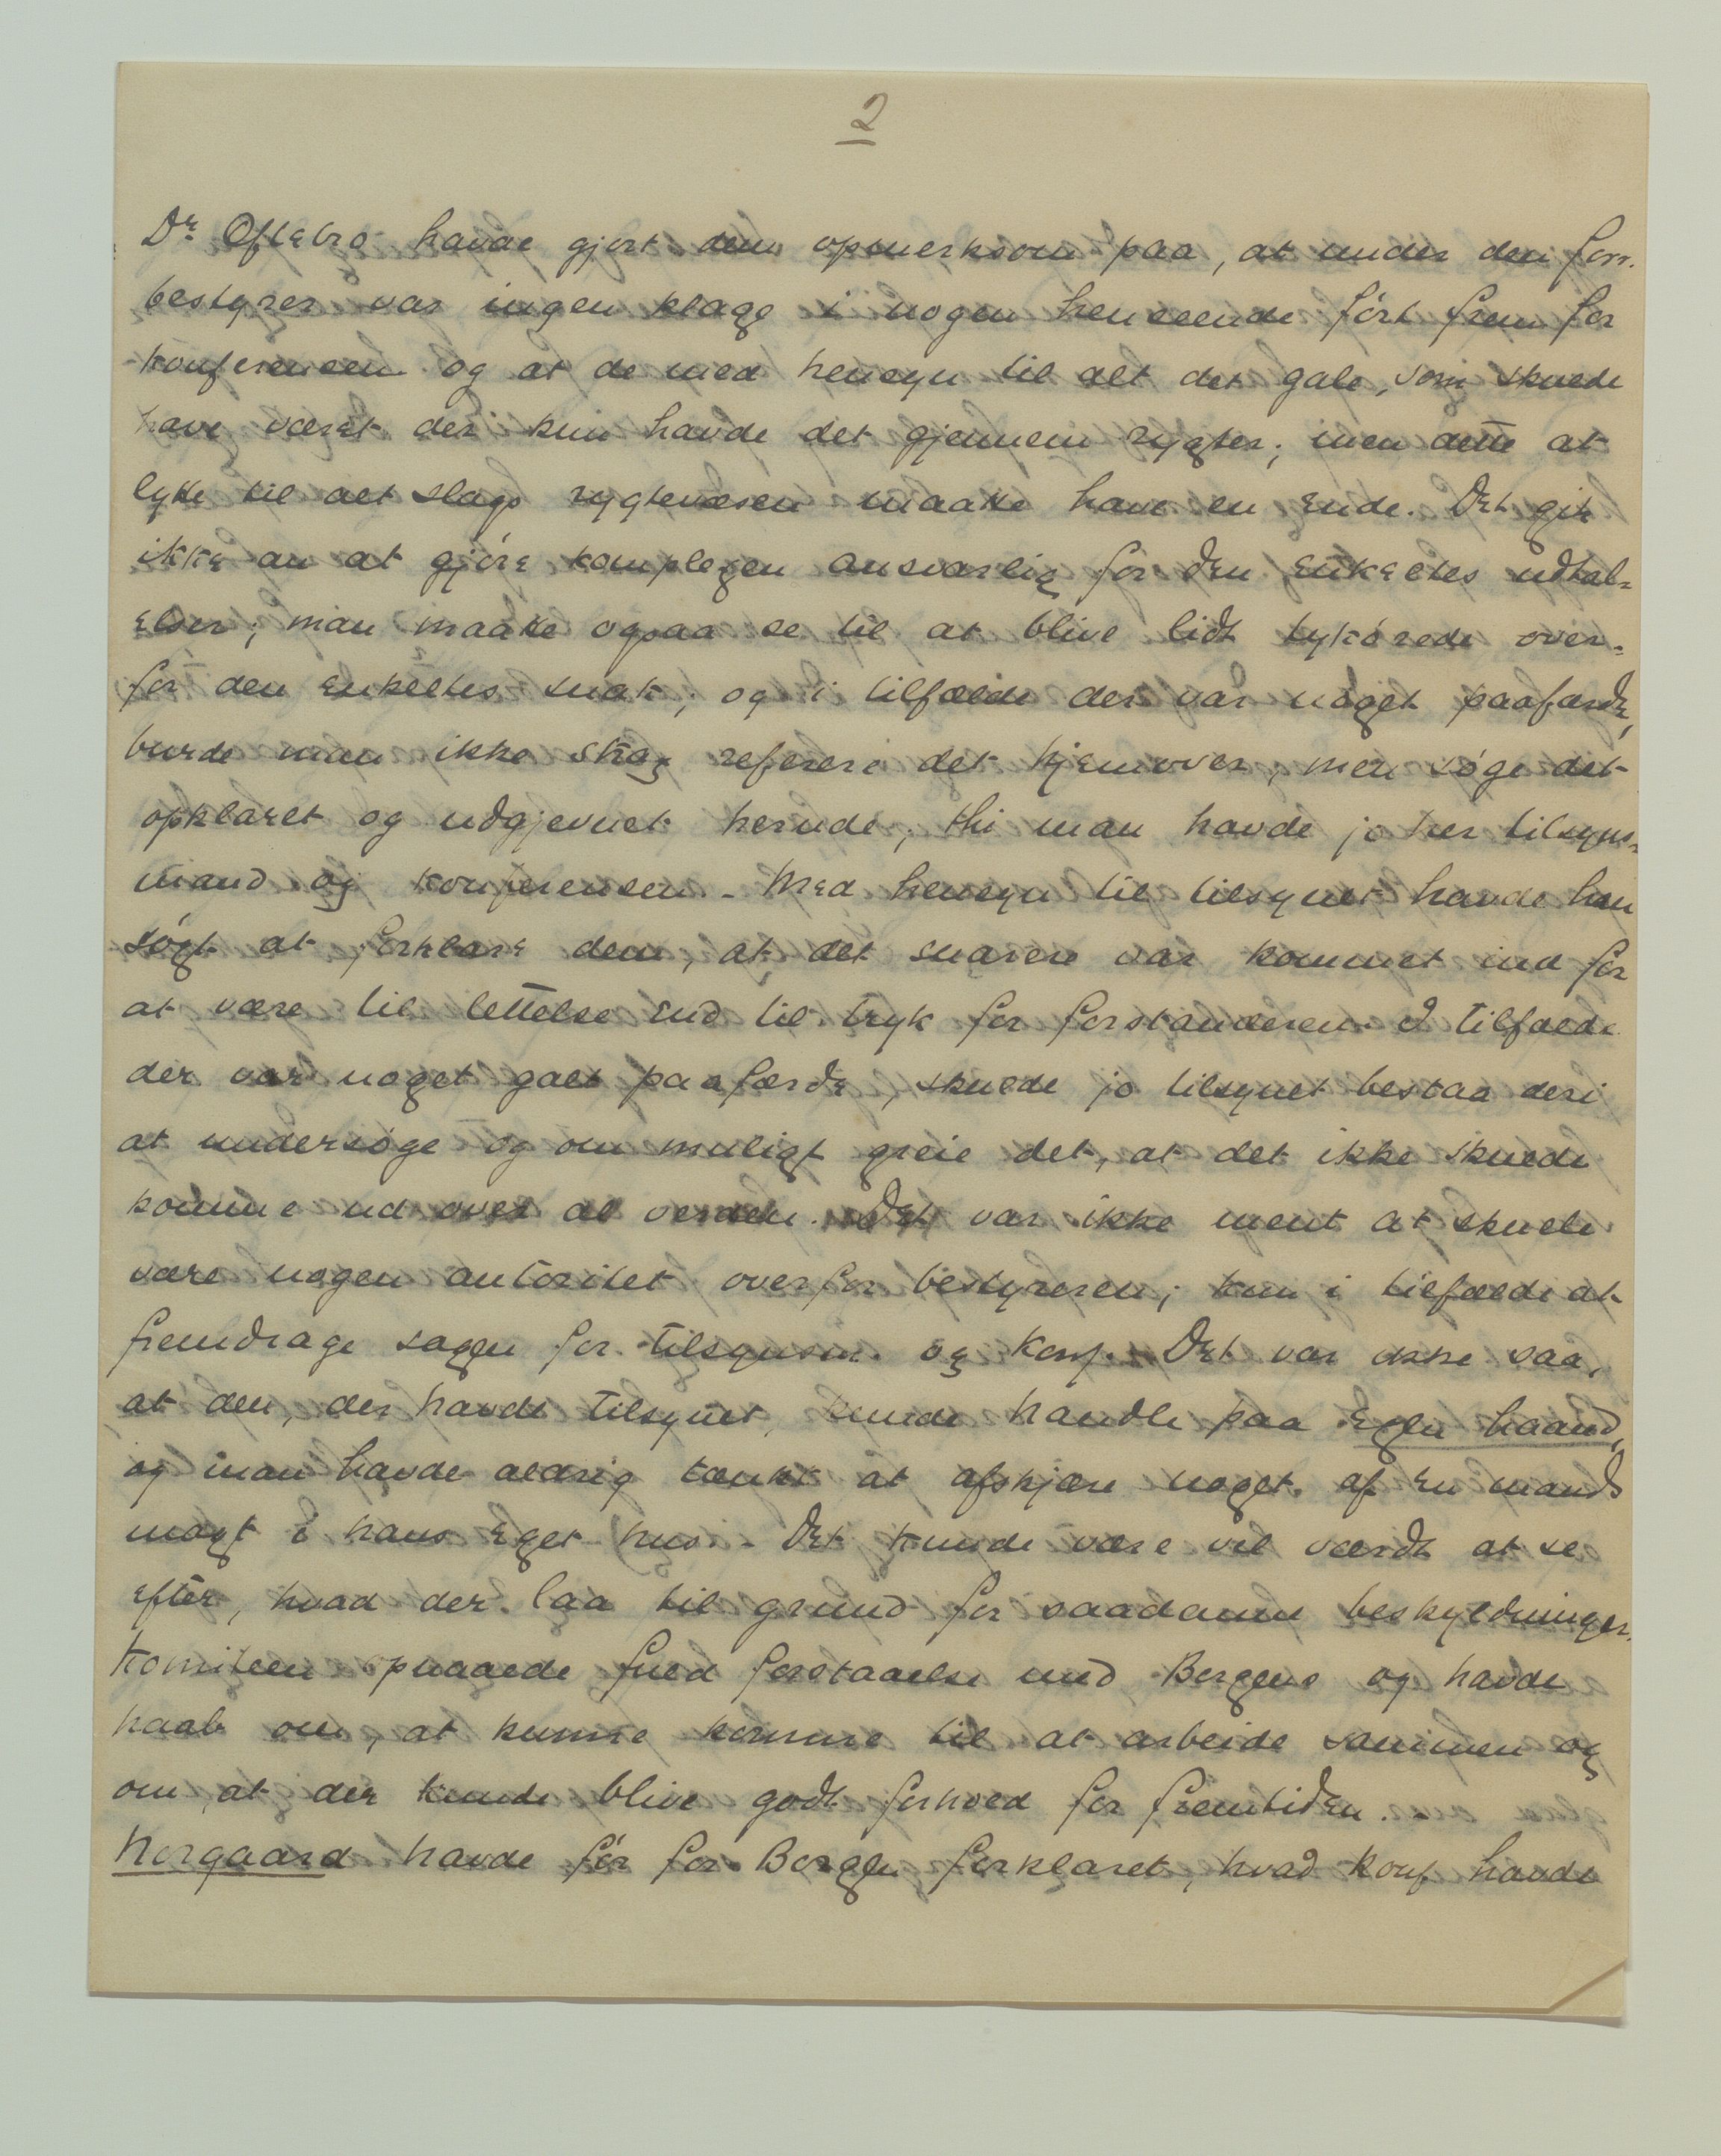 2
Dr Oftebro havde gjort dem opmerksom paa, at under den forr.
bestyrer var ingen klage i nogen henseende ført frem for
konferensen og at de med hensyn til alt det gale, som skulde
have været der kun havde det gjennem rygter; men dette at
lytte til alt slags rygtevæsen maatte have en ende. Det gik
ikke an at gjøre komplexen ansvarlig for den enkeltes udtal-
elser; man maatte ogsaa se til at blive lidt tykørede over-
for den enkeltes snak; og i tilfælde der var noget paafærde,
burde man ikke strax referere det hjemover, men søge det
opklaret og udgjevnet herude; thi man havde jo her tilsyns-
mand og konferensen. - Med hensyn til tilsynet havde han
søgt at forklare dem, at det snarere var kommet ind for
at være til lettelse end til tryk for forstanderen. I tilfælde
der var noget galt paafærde, skulde jo tilsynet bestaa deri
at undersøge og om muligt greie det, at det ikke skulde
komme ud over al verden. Det var ikke ment at skulle
være nogen autoritet overfor bestyreren; kun i tilfælde at
fremdrage sagen for tilsynsm. og konf. - Det var ikke saa,
at den, der havde tilsynet, kunde handle paa egen haand,
og man havde aldrig tænkt at afskjære noget af en mands
magt i hans eget hus. - Det kunde være vel værdt at se
efter, hvad der laa til grund for saadanne beskyldninger.
Komiteen opnaaede fuld forstaaelse med Borgens og havde
haab om, at kunne komme til at arbeide sammen og
om, at der kunde blive godt forhold for fremtiden. -
Norgaard havde før for Borgen forklaret, hvad konf. havde